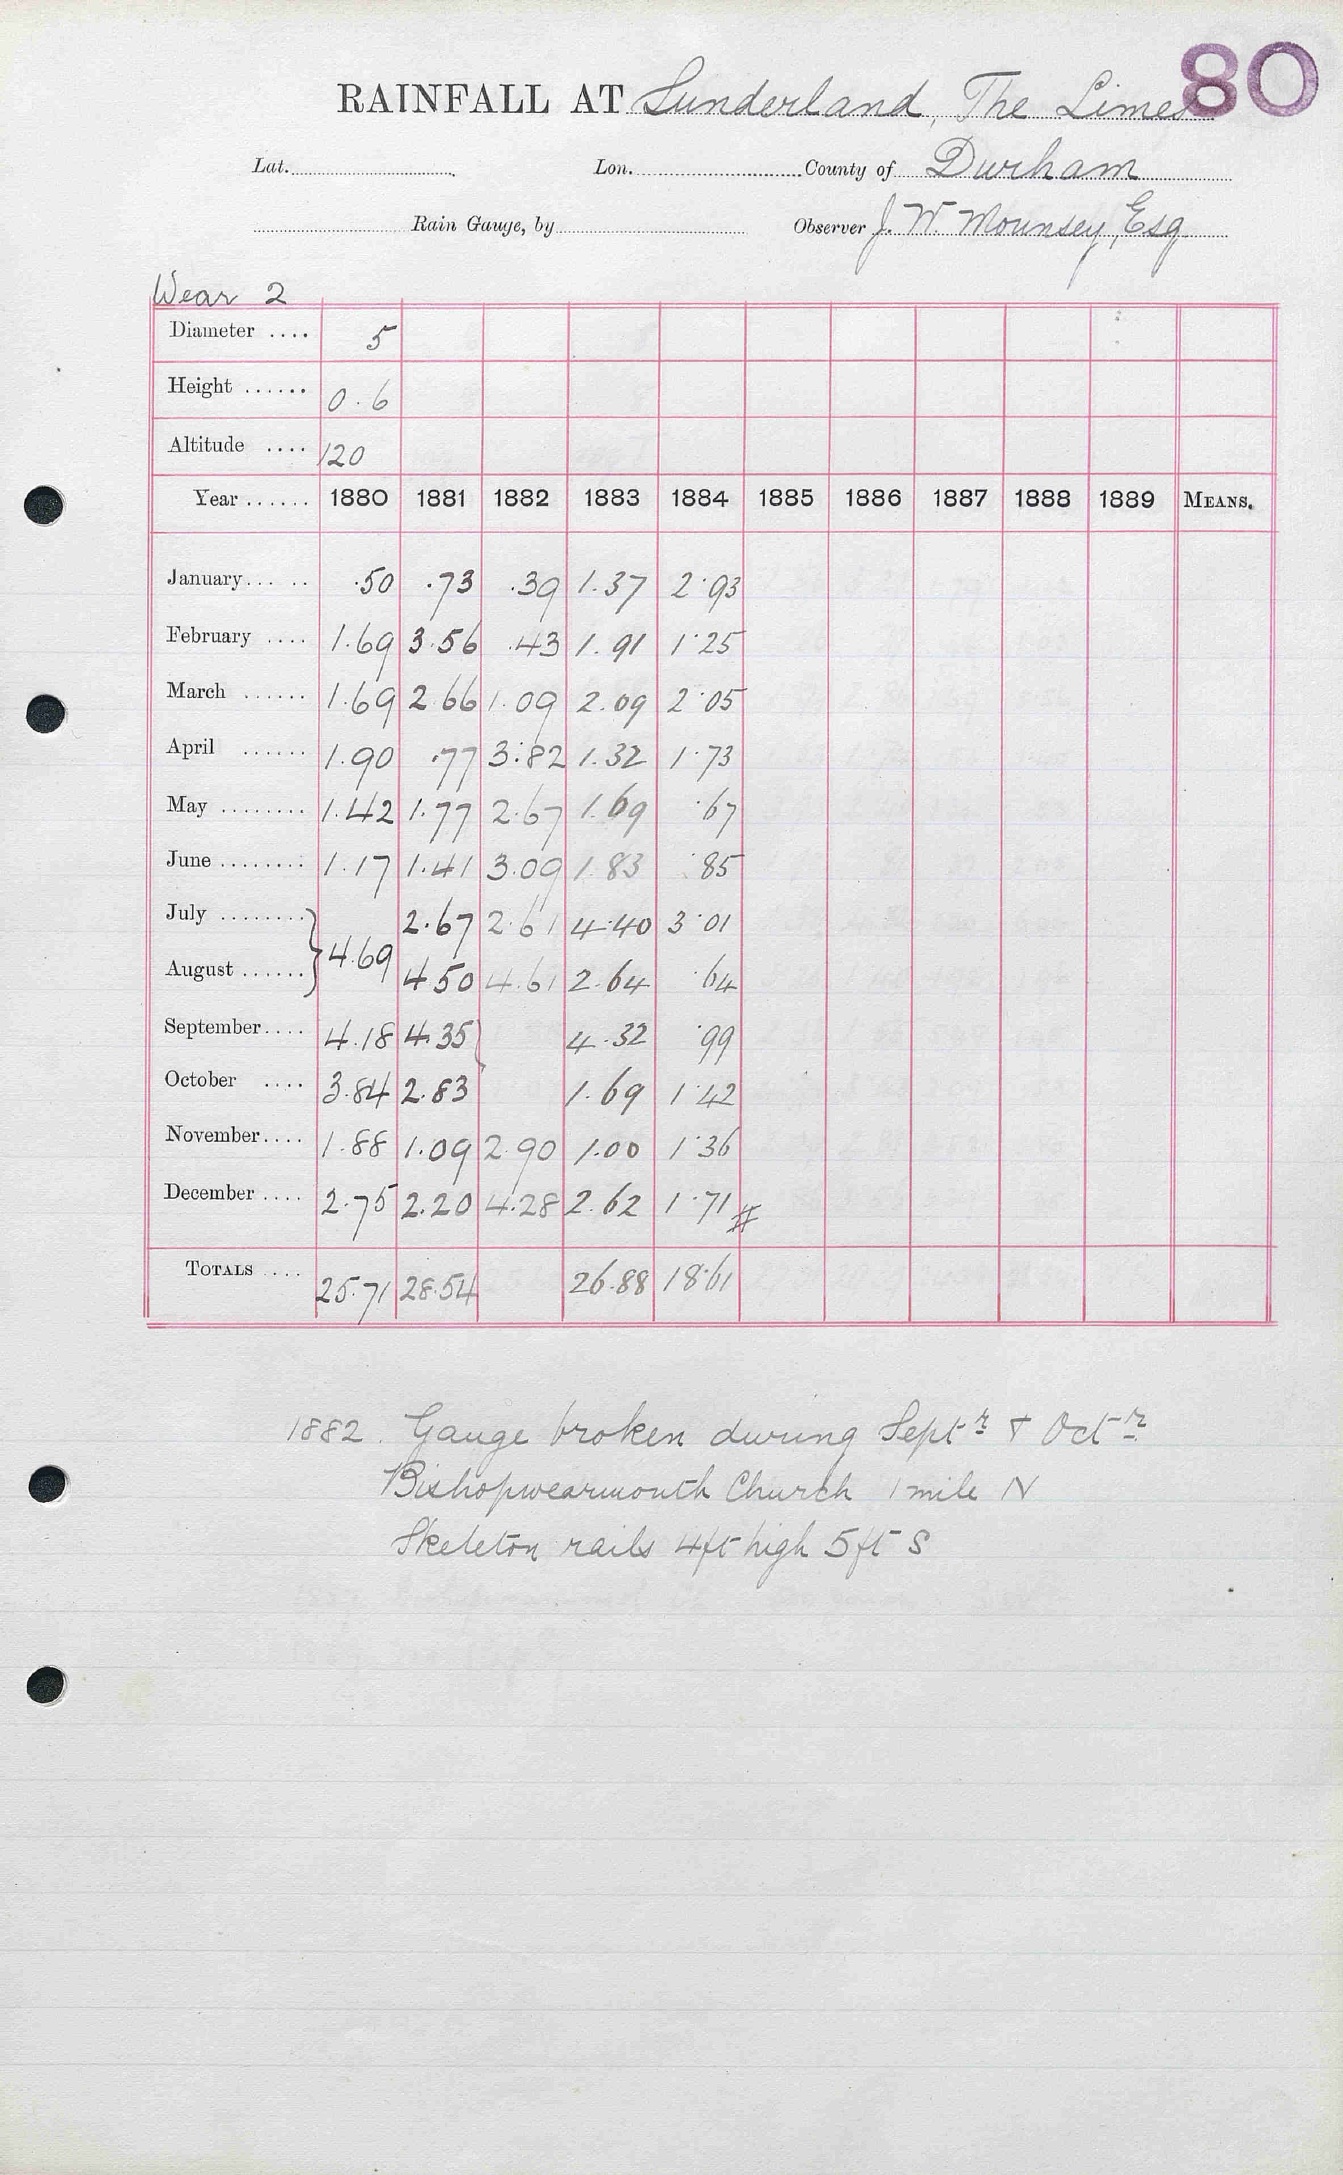 80
RAINFALL AT Sunderland, The Limes
Lat. Lon. County of Durham
Rain Gauge, by Observer J. W. Mounsey, Esq
Wear 2
Diameter .... 5
Height ...... 0.6
Altitude .... 120
Year ...... 1880 1881 1882 1883 1884 1885 1886 1887 1888 1889 MEANS.
January... .. .50 .73 .39 1.37 2.93
February .... 1.69 3.56 .43 1.91 1.25
March ...... 1.69 2.66 1.09 2.09 2.05
April ...... 1.90 .77 3.82 1.32 1.73
May ........ 1.42 1.77 2.67 1.69 .67
June ........ 1.17 1.41 3.09 1.83 .85
July ........ 2.67 2.61 4.40 3.01
August ...... } 4.69 4.50 4.61 2.64 .64
September.... 4.18 4.35 4.32 .99
October .... 3.84 2.83 1.69 1.42
November.... 1.88 1.09 2.90 1.00 1.36
December .... 2.75 2.20 4.28 2.62 1.71 #
TOTALS .... 25.71 28.54 26.88 18.61
1882. Gauge broken during Septr & Octr
Bishopwearmouth Church 1 mile N
Skeleton rails 4ft high 5ft S